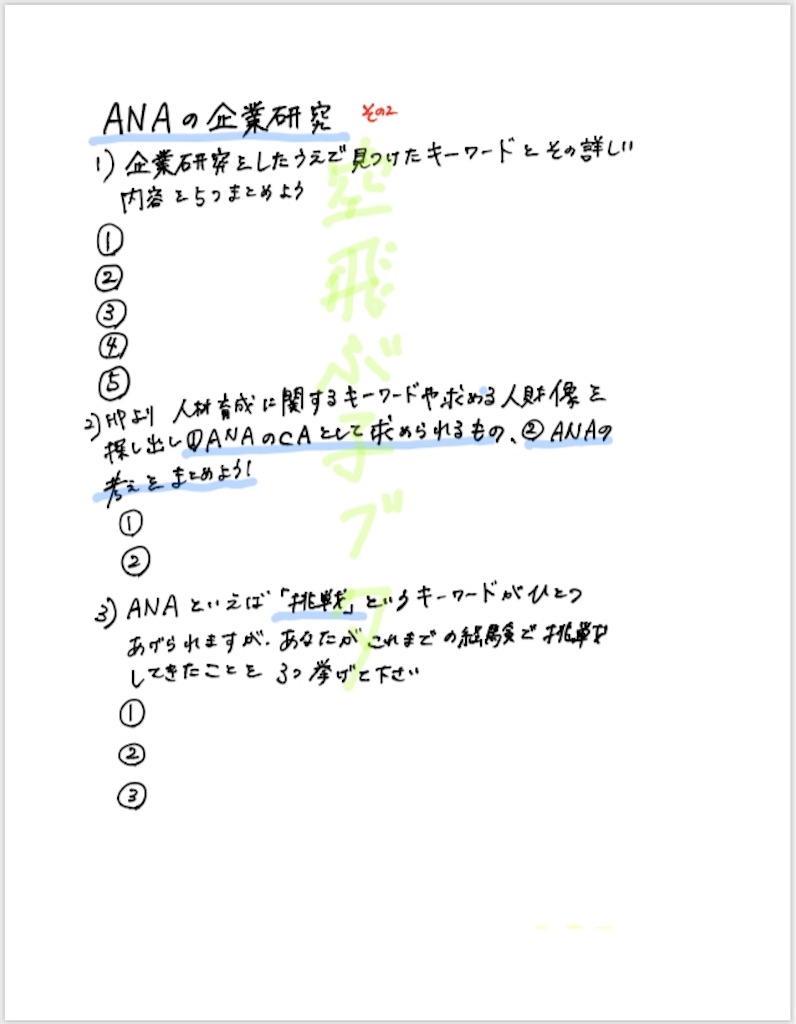 ANAの企業研究 その2
1) 企業研究をしたうえで見つけたキーワードとその詳しい
内容を5つまとめよう
①
②
③
④
⑤
2) HPより 人材育成に関するキーワードや求める人財像を
探し出し①ANAのCAとして求められるもの、②ANAの
考えをまとめよう!
①
②
3) ANAといえば「挑戦」というキーワードがひとつ
あげられますが、あなたがこれまでの経験で挑戦
してきたことを 3つ挙げて下さい
①
②
③
空飛ぶ子ブタ